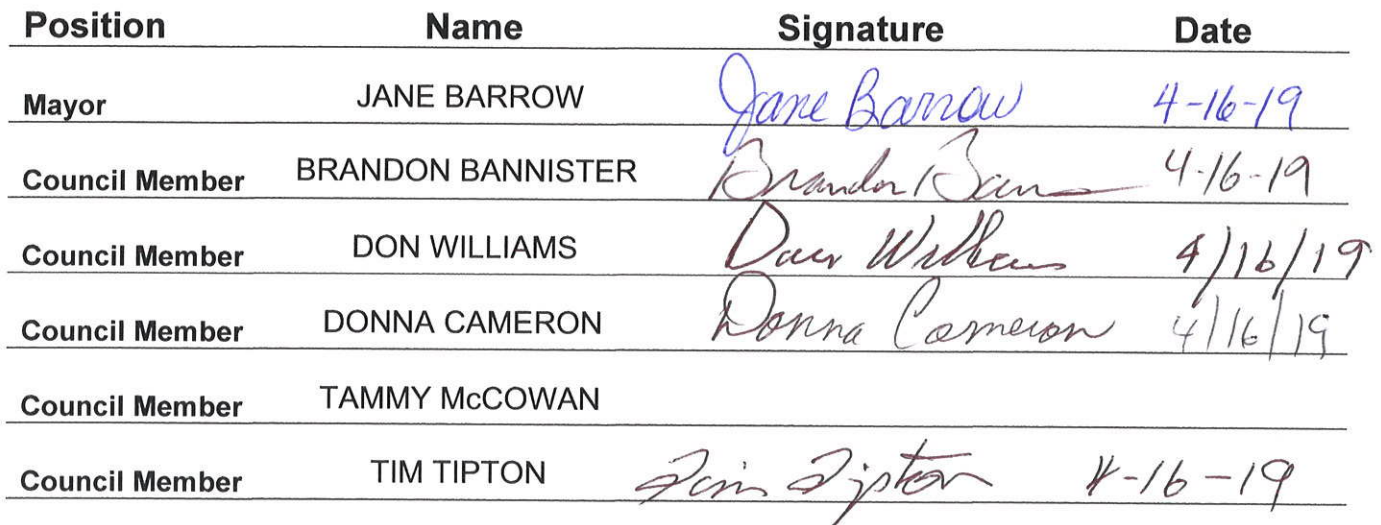 Position Name Signature Date
Mayor JANE BARROW Jane Barrow 4-16-19
Council Member BRANDON BANNISTER Brandon Ban 4-16-19
Council Member DON WILLIAMS Don Williams 4/16/19
Council Member DONNA CAMERON Donna Cameron 4/16/19
Council Member TAMMY McCOWAN
Council Member TIM TIPTON Tim Tipton 4-16-19